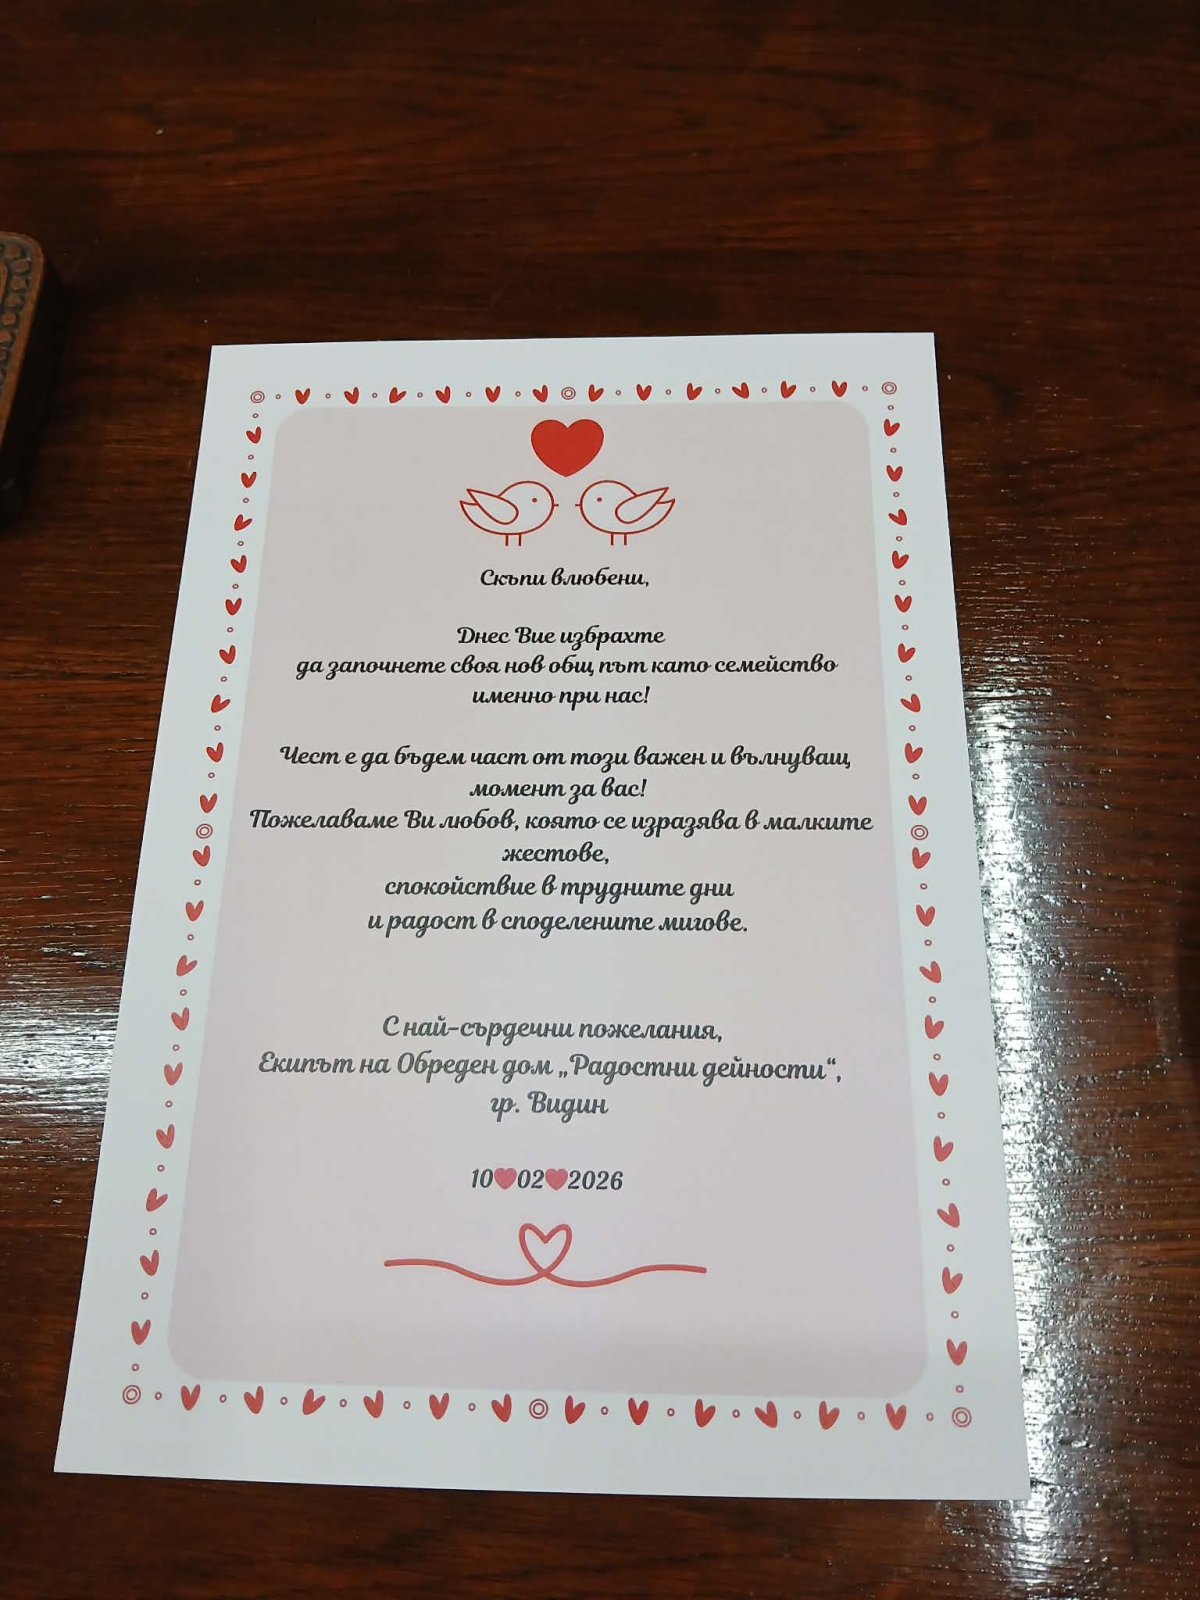 Скъпи влюбени,
Днес Вие избрахте
да започнете своя нов общ път като семейство
именно при нас!
Чест е да бъдем част от този важен и вълнуващ
момент за вас!
Пожелаваме Ви любов, която се изразява в малките
жестове,
спокойствие в трудните дни
и радост в споделените мигове.
С най-сърдечни пожелания,
Екипът на Обреден дом „Радостни дейности“,
гр. Видин
10❤02❤2026